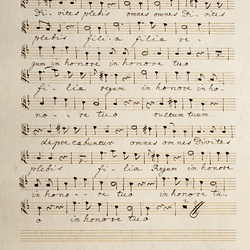 Divites plebis omnes omnes Divites
plebis filia filia re-
gum in honore in honore tuo
filia regum in honore in ho-
no- re tuo vultum tuum
deprecabuntur omnes omnes Divites
plebis filia Regum in honore
in hono- re tuo in honore tu-
o in honore tuo